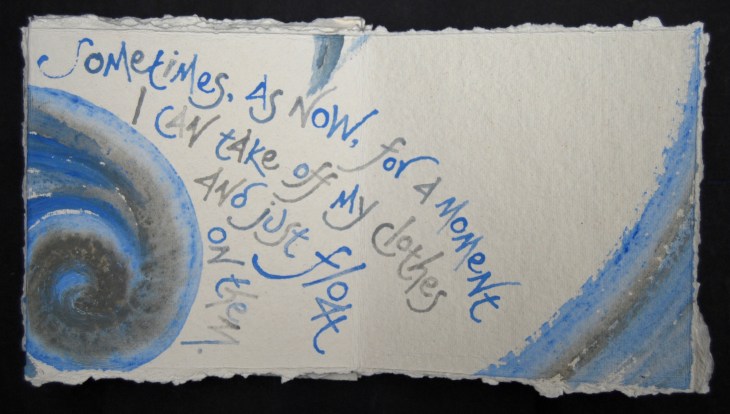 Sometimes, as now, for a moment
I can take off my clothes
and just float
on them.